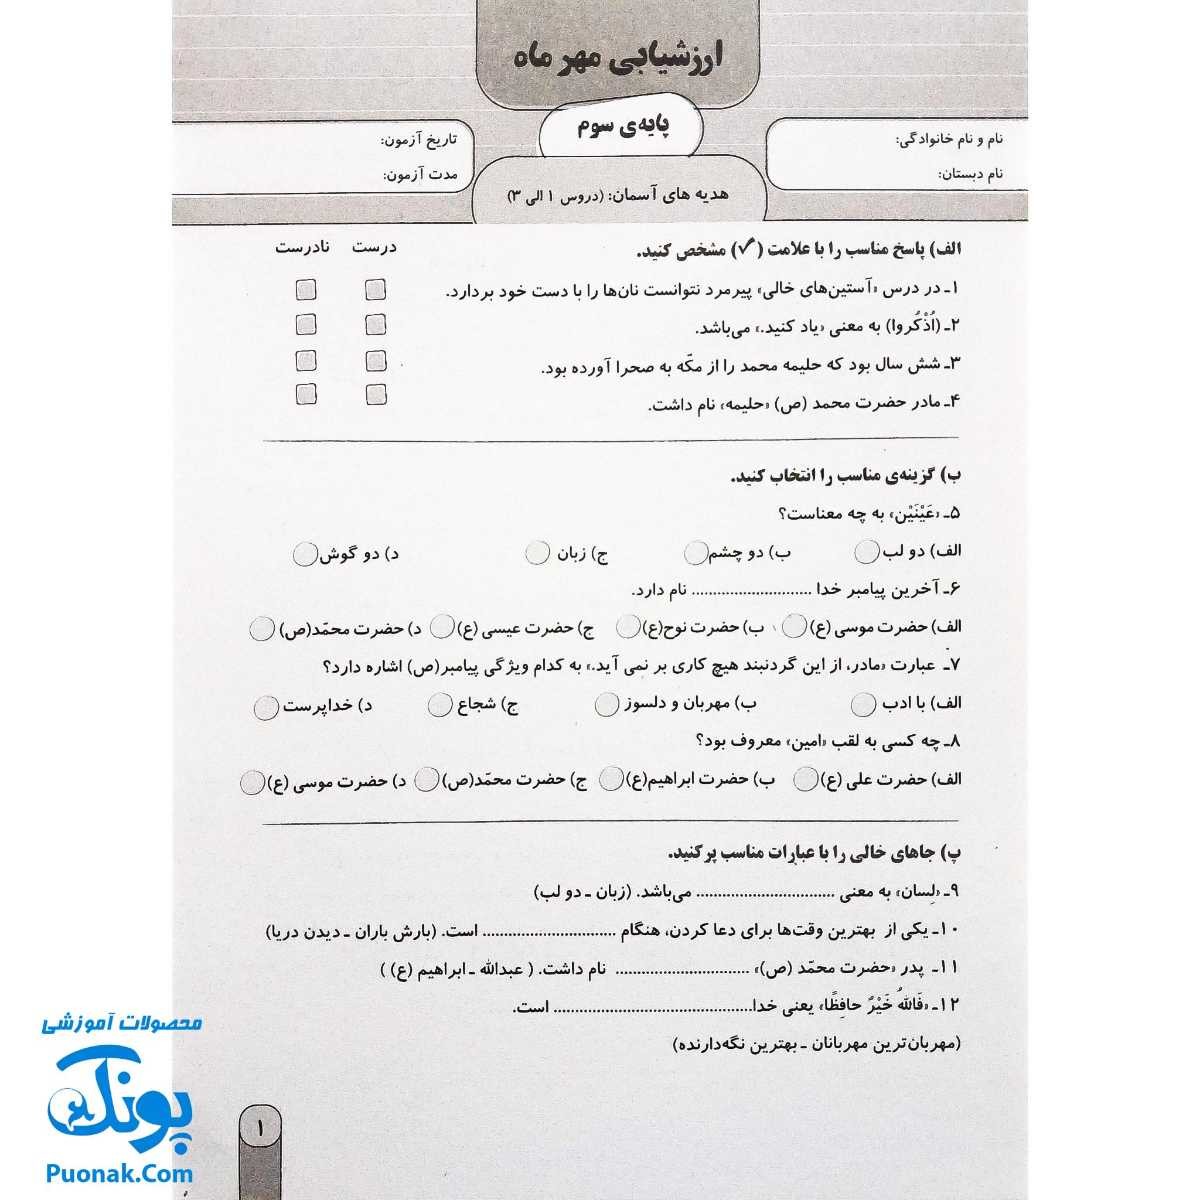 ارزشیابی مهر ماه
پایه‌ی سوم
نام و نام خانوادگی:
نام دبستان:
تاریخ آزمون:
مدت آزمون:
هدیه های آسمان: (دروس ۱ الی ۳)
الف) پاسخ مناسب را با علامت (✓) مشخص کنید. درست نادرست
۱ـ در درس «آستین‌های خالی» پیرمرد نتوانست نان‌ها را با دست خود بردارد.
۲ـ (اُذْکُروا) به معنی «یاد کنید.» می‌باشد.
۳ـ شش سال بود که حلیمه محمد را از مکّه به صحرا آورده بود.
۴ـ مادر حضرت محمد (ص) «حلیمه» نام داشت.
ب) گزینه‌ی مناسب را انتخاب کنید.
۵ـ «عَیْنَیْن» به چه معناست؟
الف) دو لب ب) دو چشم ج) زبان د) دو گوش
۶ـ آخرین پیامبر خدا ............................ نام دارد.
الف) حضرت موسی (ع) ب) حضرت نوح(ع) ج) حضرت عیسی (ع) د) حضرت محمّد(ص)
۷ـ عبارت «مادر، از این گردنبند هیچ کاری بر نمی آید.» به کدام ویژگی پیامبر(ص) اشاره دارد؟
الف) با ادب ب) مهربان و دلسوز ج) شجاع د) خداپرست
۸ـ چه کسی به لقب «امین» معروف بود؟
الف) حضرت علی (ع) ب) حضرت ابراهیم(ع) ج) حضرت محمّد(ص) د) حضرت موسی (ع)
پ) جاهای خالی را با عبارات مناسب پر کنید.
۹ـ «لِسان» به معنی ................................ می‌باشد. (زبان ـ دو لب)
۱۰ـ یکی از بهترین وقت‌ها برای دعا کردن، هنگام ............................... است. (بارش باران ـ دیدن دریا)
۱۱ـ پدر «حضرت محمّد (ص)» ............................... نام داشت. ( عبدالله ـ ابراهیم (ع) )
۱۲ـ «فَاللهُ خَیْرٌ حافِظًا» یعنی خدا............................................... است.
(مهربان‌ترین مهربانان ـ بهترین نگه‌دارنده)
۱
محصولات آموزشی
پونک
Puonak.Com